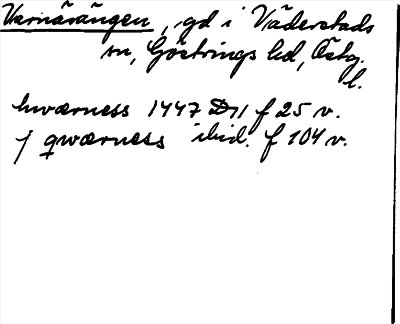 Varnärängen, gd i Väderstads
sn, Göstrings hd, Östg.
l.
hwærness 1447 D 11 f 25 v.
j qwærness ibid. f 104 v.